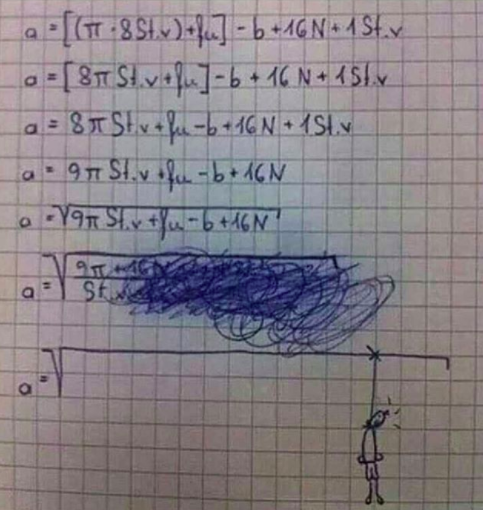 a = [(π · 8St.v)+fu] - b + 16N + 1St.v
a = [8π St.v + fu] - b + 16N + 1St.v
a = 8π St.v + fu - b + 16N + 1St.v
a = 9π St.v + fu - b + 16N
a = √9π St.v + fu - b + 16N
a = √9π + 16N
St.
a = √